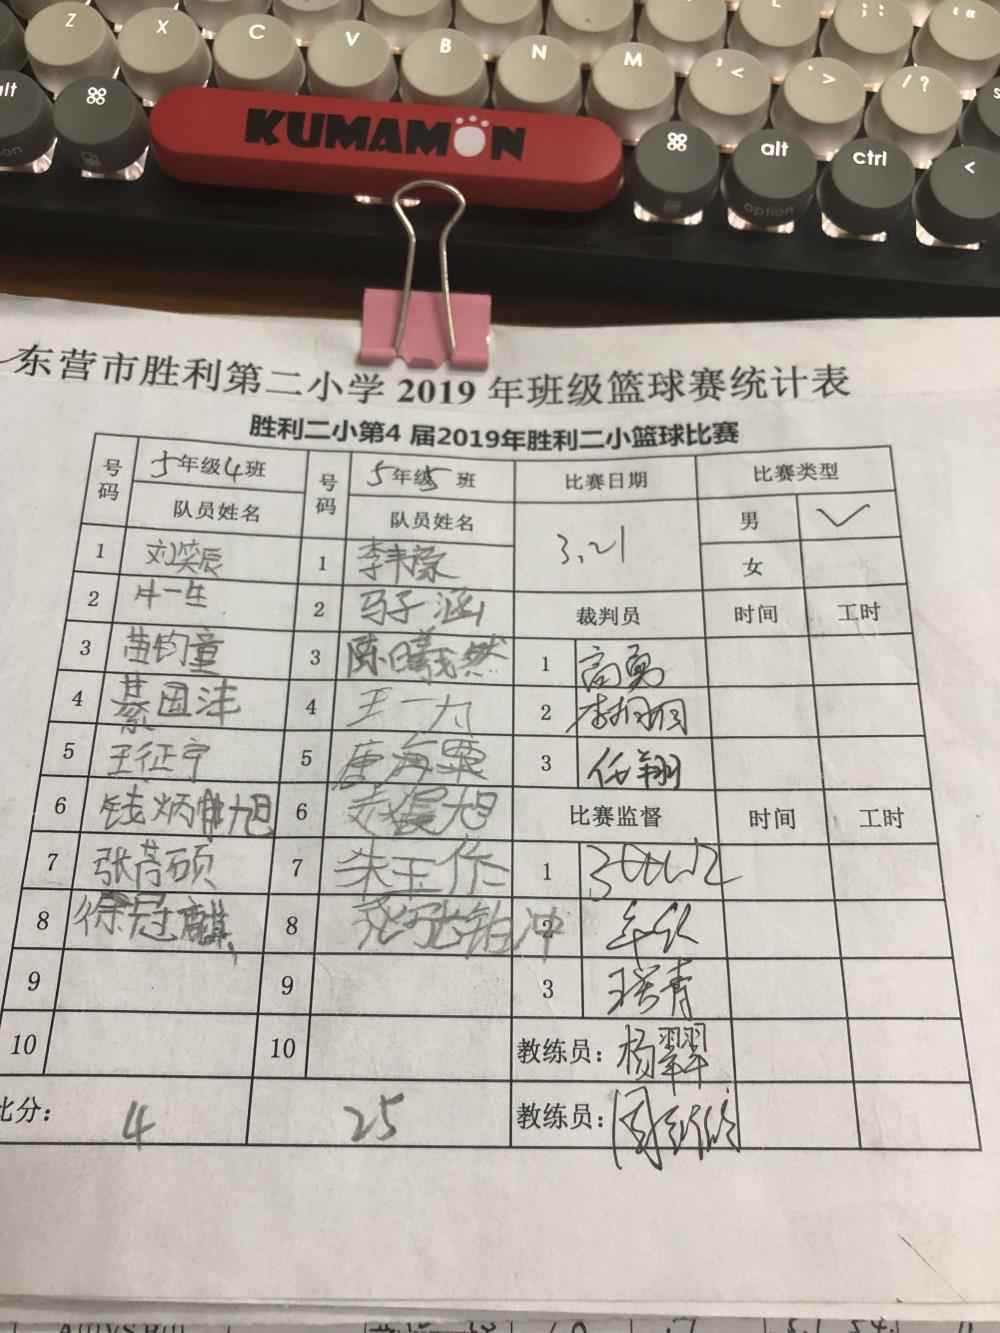 Z X C V B N M , < . > / ? ; : ' "
alt ⌘ KUMAMON ⌘ alt ctrl <
option option
东营市胜利第二小学 2019 年班级篮球赛统计表
胜利二小第4 届2019年胜利二小篮球比赛
号码 5年级4班 号码 5年级5班 比赛日期 比赛类型
队员姓名 队员姓名 3.21 男 ✓
1 刘笑辰 1 李韦檬 女
2 牛一生 2 马子涵 裁判员 时间 工时
3 苗钧童 3 陈曦然 1 高勇
4 綦国沣 4 王一力 2
5 王征宇 5 唐海粟 3 任翔
6 钱炳旭 6 晨旭 比赛监督 时间 工时
7 张芮硕 7 朱玉作 1
8 徐冠麒 8 2
9 9 3 王瑞青
10 10 教练员: 杨翠翠
比分: 4 25 教练员: 周